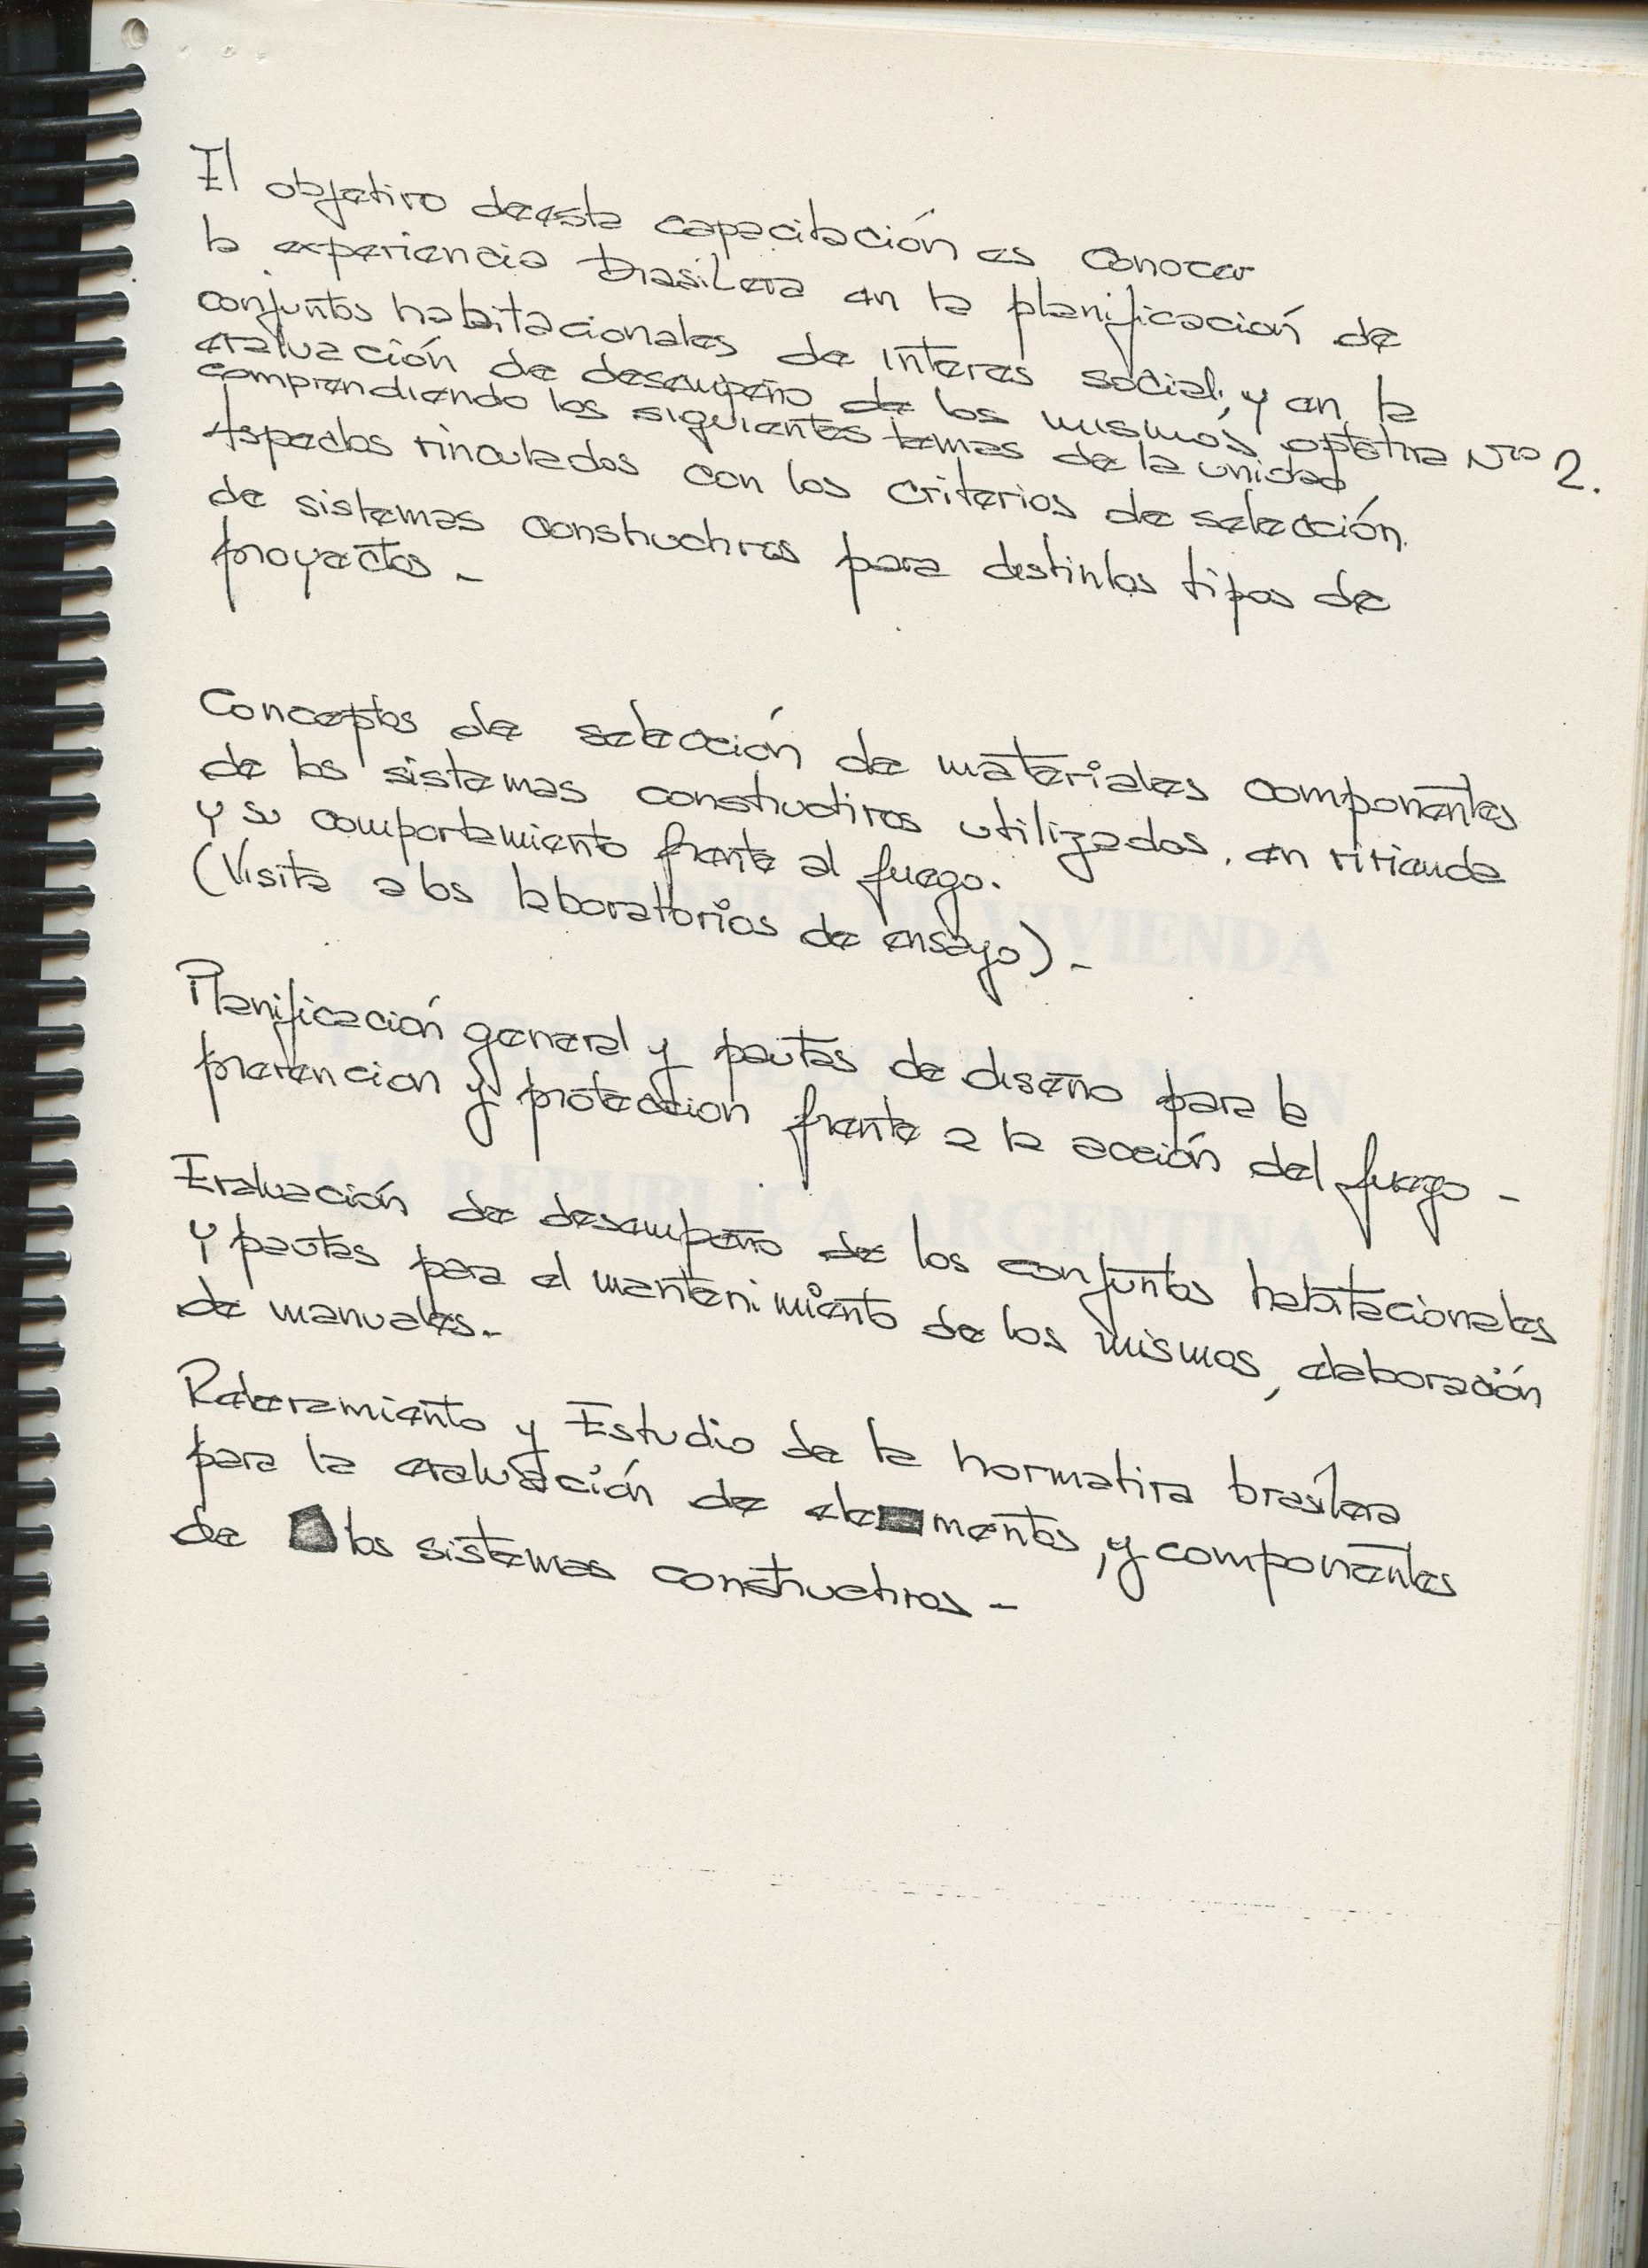 El objetivo de esta capacitación es conocer
la experiencia brasilera en la planificación de
conjuntos habitacionales de interes social, y en la
evaluación de desempeño de los mismos,
comprendiendo los siguientes temas de la unidad optativa Nro 2.
Aspectos vinculados con los criterios de selección
de sistemas constructivos para distintos tipos de
proyectos -
Conceptos de selección de materiales componentes
de los sistemas constructivos utilizados, en vivienda
y su comportamiento frente al fuego.
(Visita a los laboratorios de ensayo) -
Planificación general y pautas de diseño para la
prevencion y proteccion frente a la acción del fuego -
Evaluación de desempeño de los conjuntos habitacionales
y pautas para el mantenimiento de los mismos, elaboración
de manuales -
Relevamiento y Estudio de la normativa brasilera
para la evaluación de elementos, y componentes
de los sistemas constructivos -
CONDICIONES DE VIVIENDA
Y DESARROLLO URBANO EN
LA REPUBLICA ARGENTINA